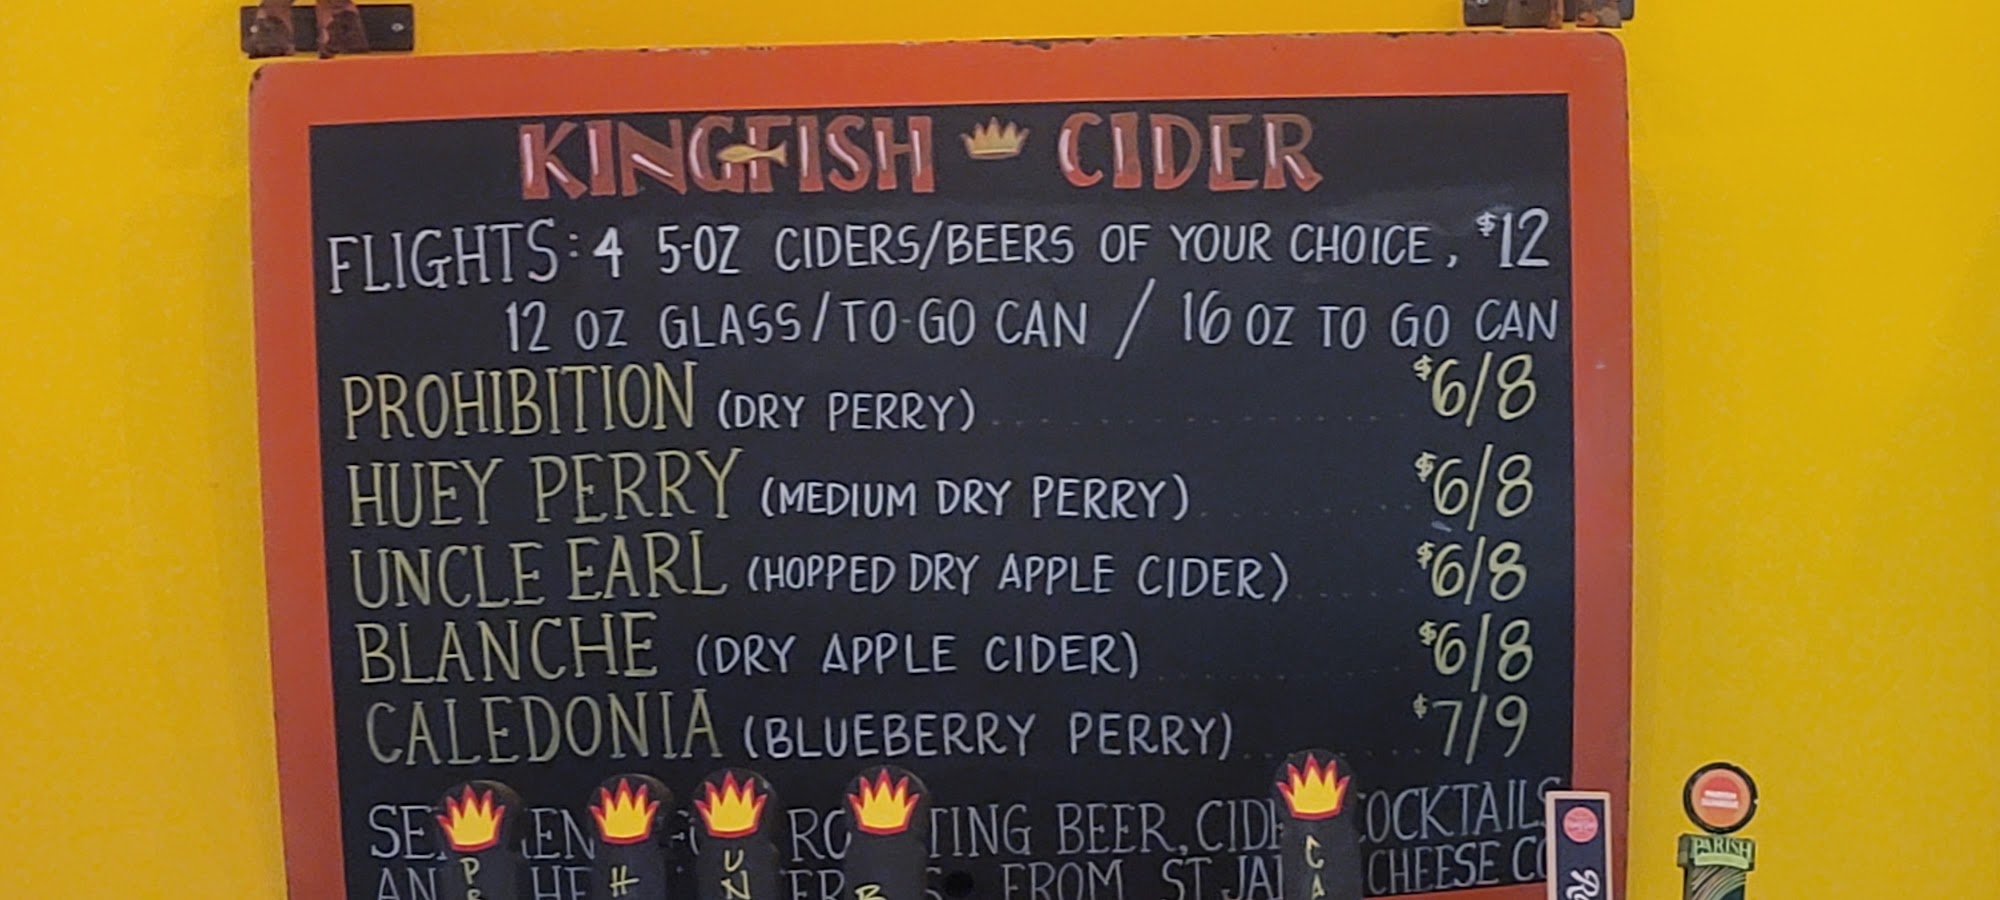 KINGFISH CIDER
FLIGHTS: 4 5-OZ CIDERS/BEERS OF YOUR CHOICE, $12
12 OZ GLASS/TO-GO CAN / 16 OZ TO GO CAN
PROHIBITION (DRY PERRY) $6/8
HUEY PERRY (MEDIUM DRY PERRY) $6/8
UNCLE EARL (HOPPED DRY APPLE CIDER) $6/8
BLANCHE (DRY APPLE CIDER) $6/8
CALEDONIA (BLUEBERRY PERRY) $7/9
BEER, COCKTAILS
FROM ST. CHEESE
PARISH